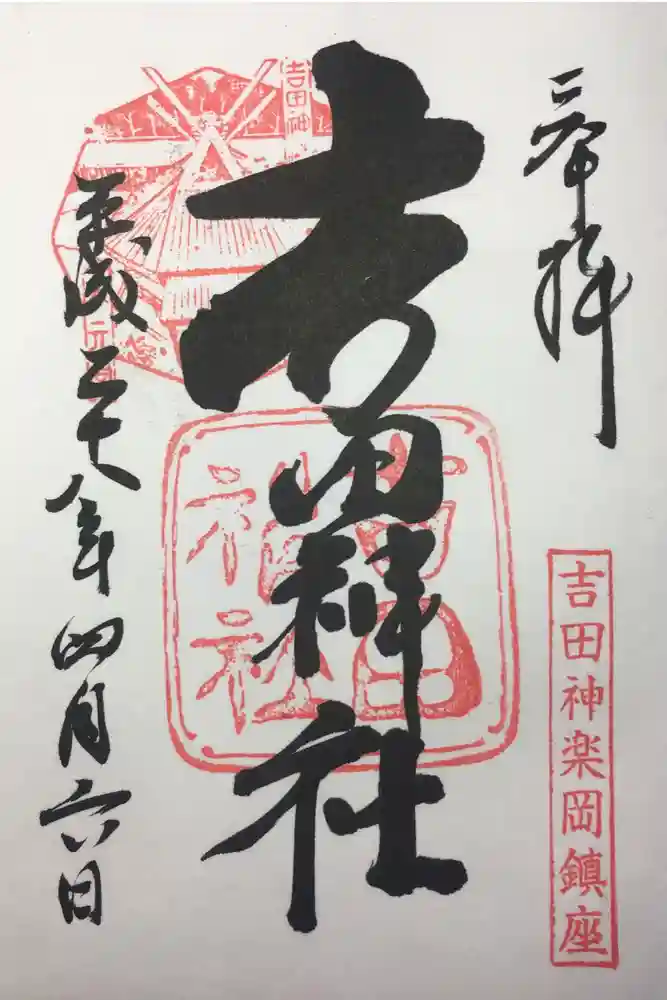 奉拝
吉田神楽岡鎮座
吉田神社
吉田
神社
吉田神
平成三十年四月六日